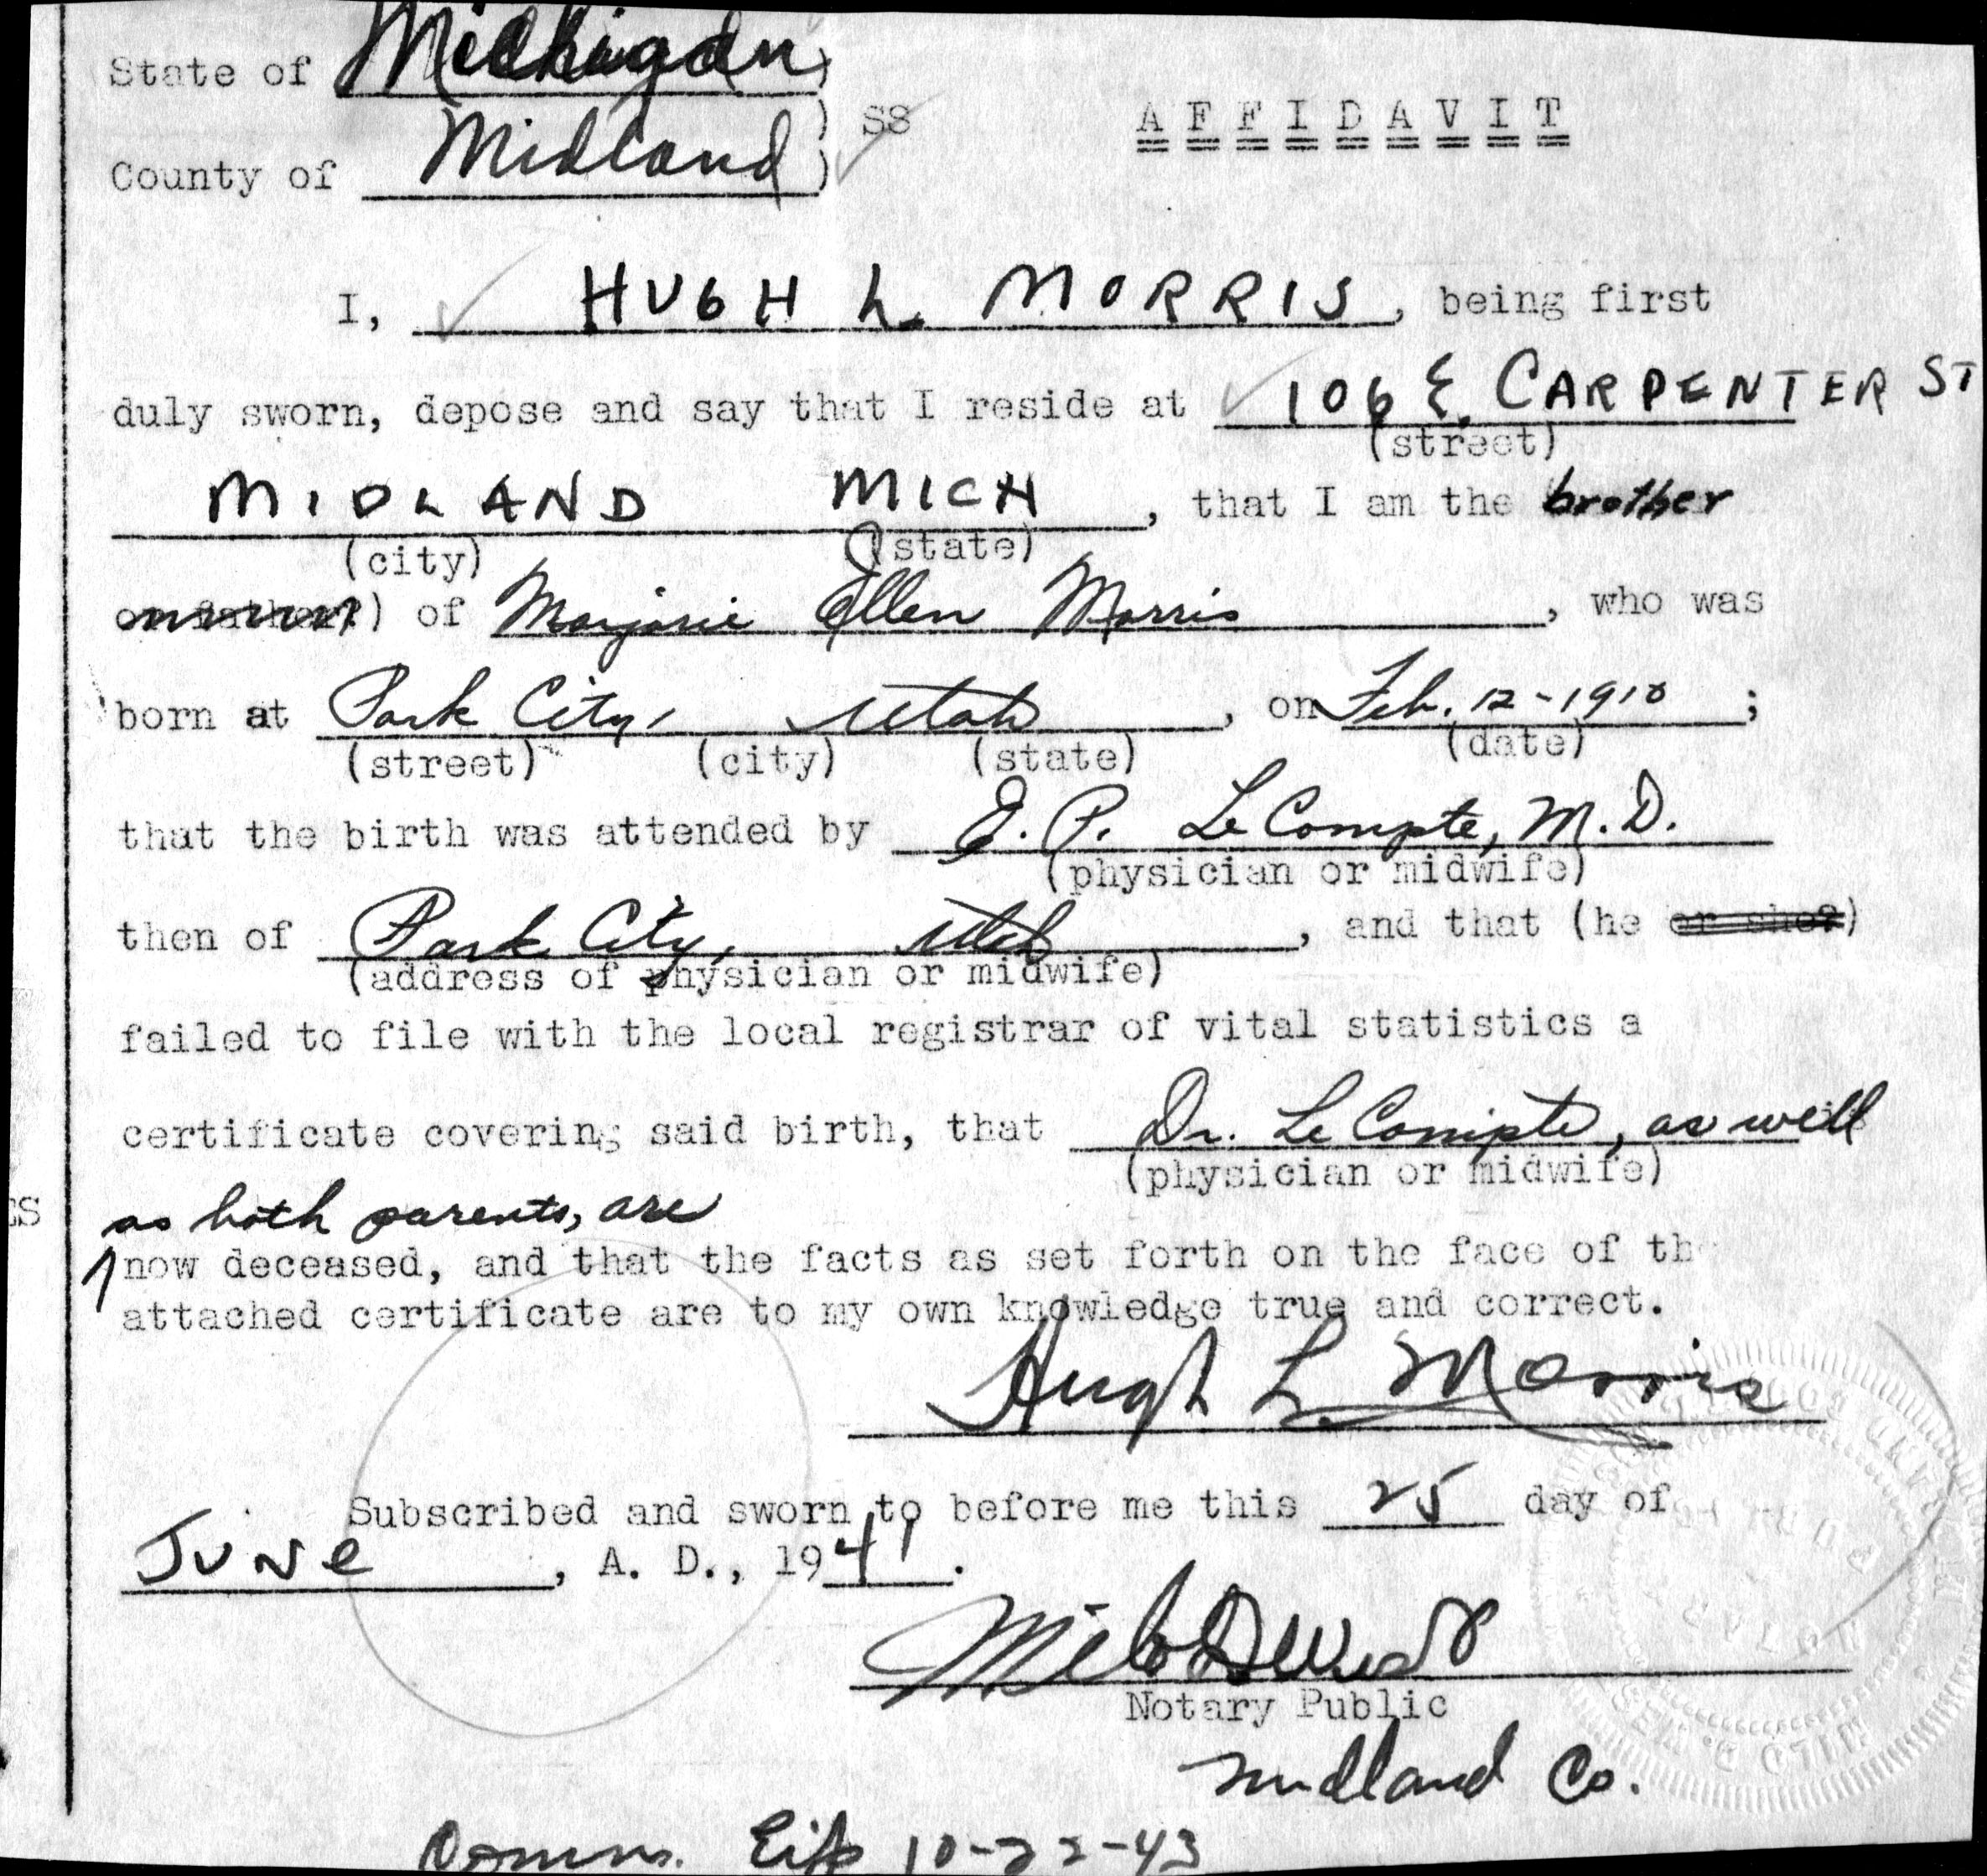 State of Michigan )
) SS
County of Midland )
A F F I D A V I T
I, HUGH L. MORRIS, being first
duly sworn, depose and say that I reside at 106 E. CARPENTER ST
(street)
MIDLAND MICH, that I am the brother
(city) (state)
or father?) of Marjorie Ellen Morris, who was
born at Park City, Utah, on Feb. 12-1910;
(street) (city) (state) (date)
that the birth was attended by E. P. Le Compte, M.D.
(physician or midwife)
then of Park City, Utah, and that (he or she?)
(address of physician or midwife)
failed to file with the local registrar of vital statistics a
certificate covering said birth, that Dr. Le Compte, as well
(physician or midwife)
as both parents, are
now deceased, and that the facts as set forth on the face of the
attached certificate are to my own knowledge true and correct.
Hugh L. Morris
Subscribed and sworn to before me this 25 day of
JUNe, A. D., 1941.
Milo D West
Notary Public
Midland Co.
Comm. Exp 10-22-43
MILO D. WEST
NOTARY